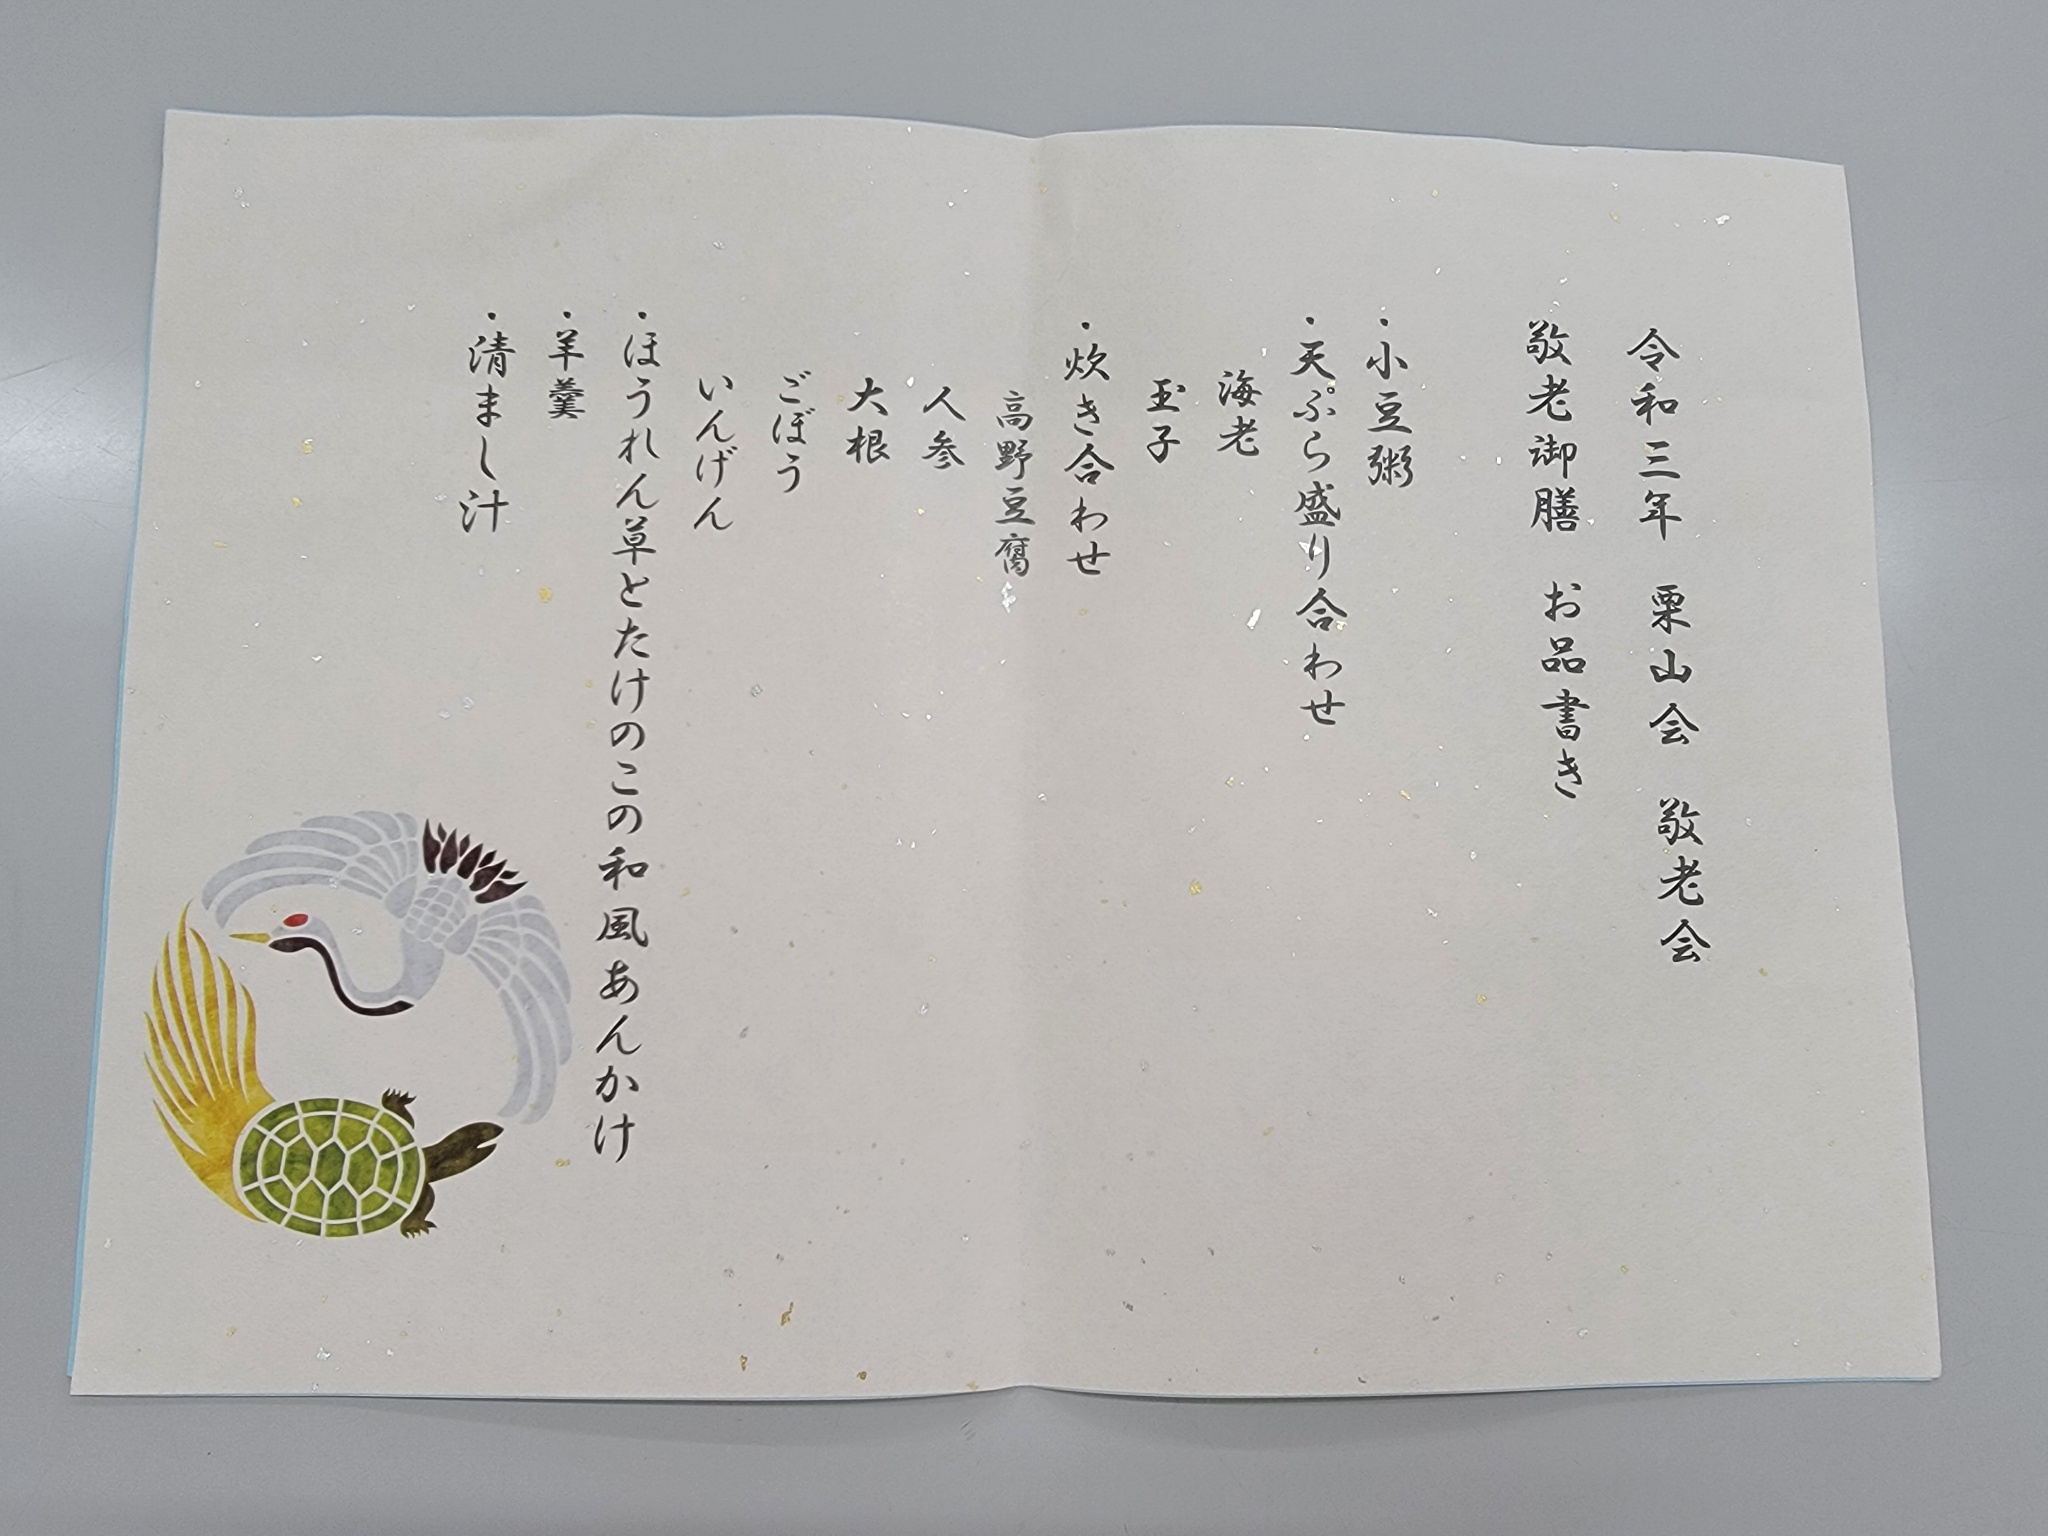 令和三年 栗山会 敬老会
敬老御膳 お品書き
・小豆粥
・天ぷら盛り合わせ
海老
玉子
・炊き合わせ
高野豆腐
人参
大根
ごぼう
いんげん
・ほうれん草とたけのこの和風あんかけ
・羊羹
・清まし汁